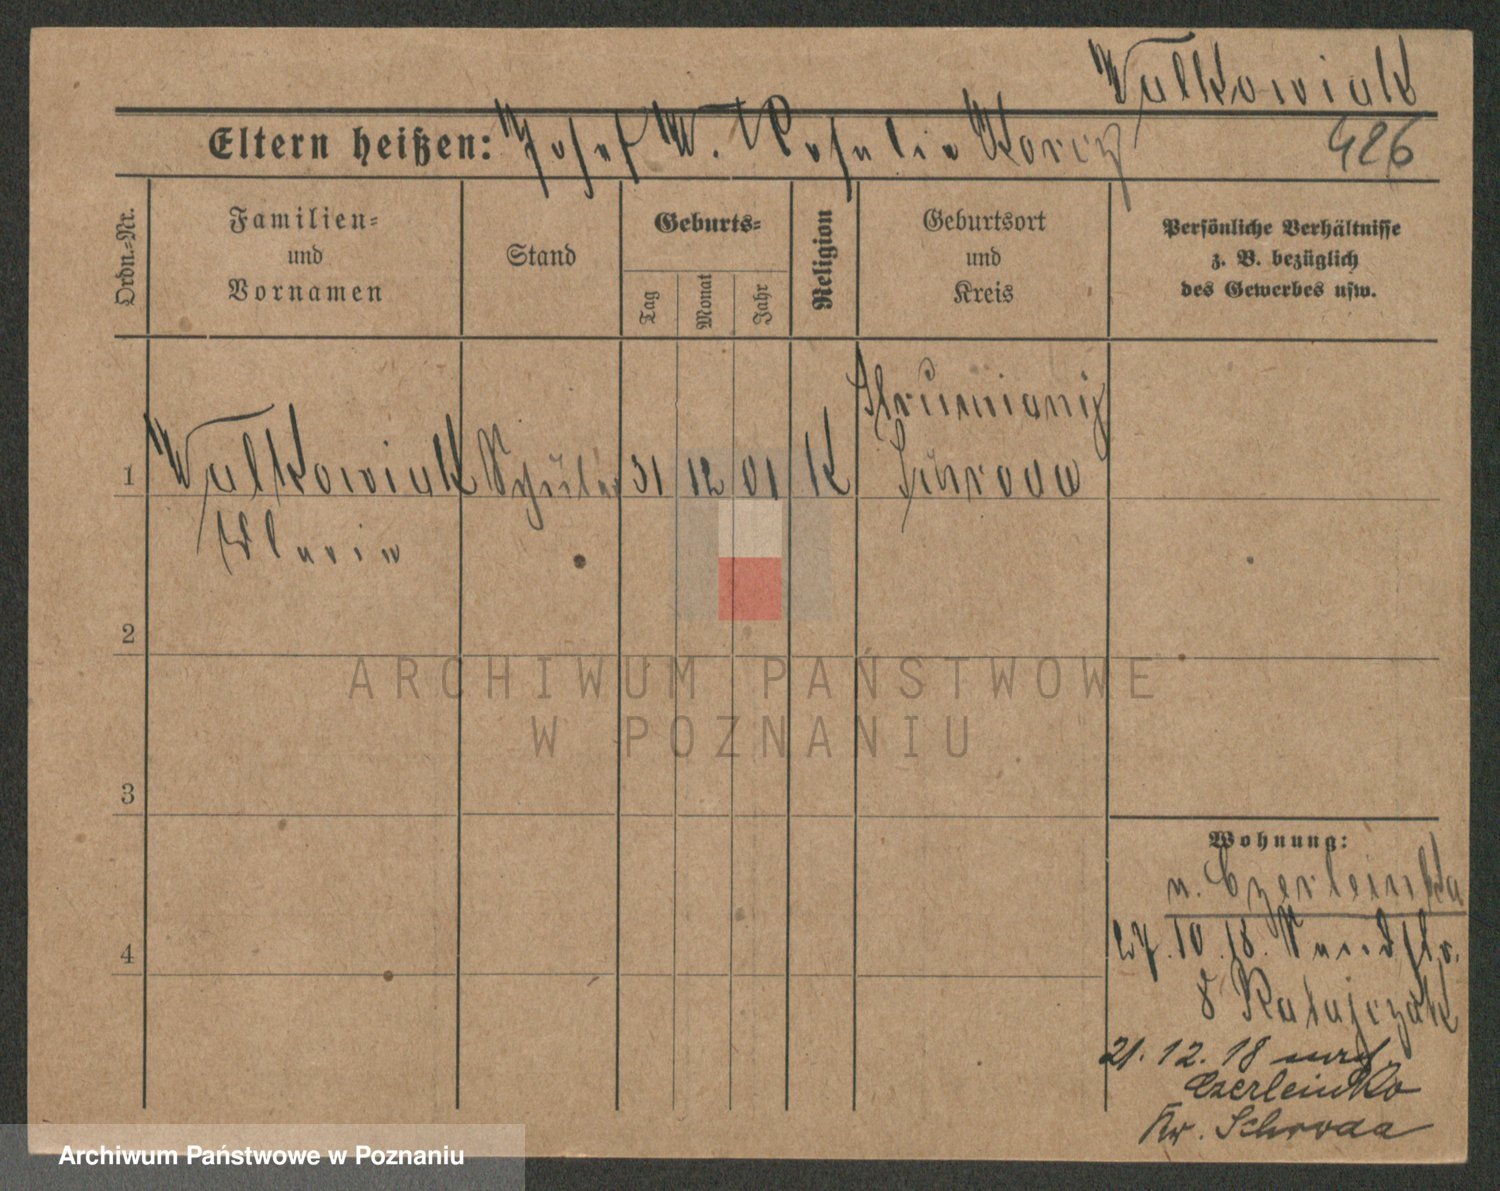 Walkowiak
Eltern heißen: Josef W. Rosalie Korcz
426
Ordn.-Nr.
Familien-
und
Vornamen
Stand
Geburts-
Tag
Monat
Jahr
Religion
Geburtsort
und
Kreis
Persönliche Verhältnisse
z. B. bezüglich
des Gewerbes usw.
1
Walkowiak Schüler 31 12 01 K
Strumiany
Schroda
Maria
2
ARCHIWUM PAŃSTWOWE
W POZNANIU
3
Wohnung:
n. Czerleinko
27. 10. 18.
8 Ratajczak
4
21. 12. 18 nach
Czerleinko
Kr. Schroda
Archiwum Państwowe w Poznaniu